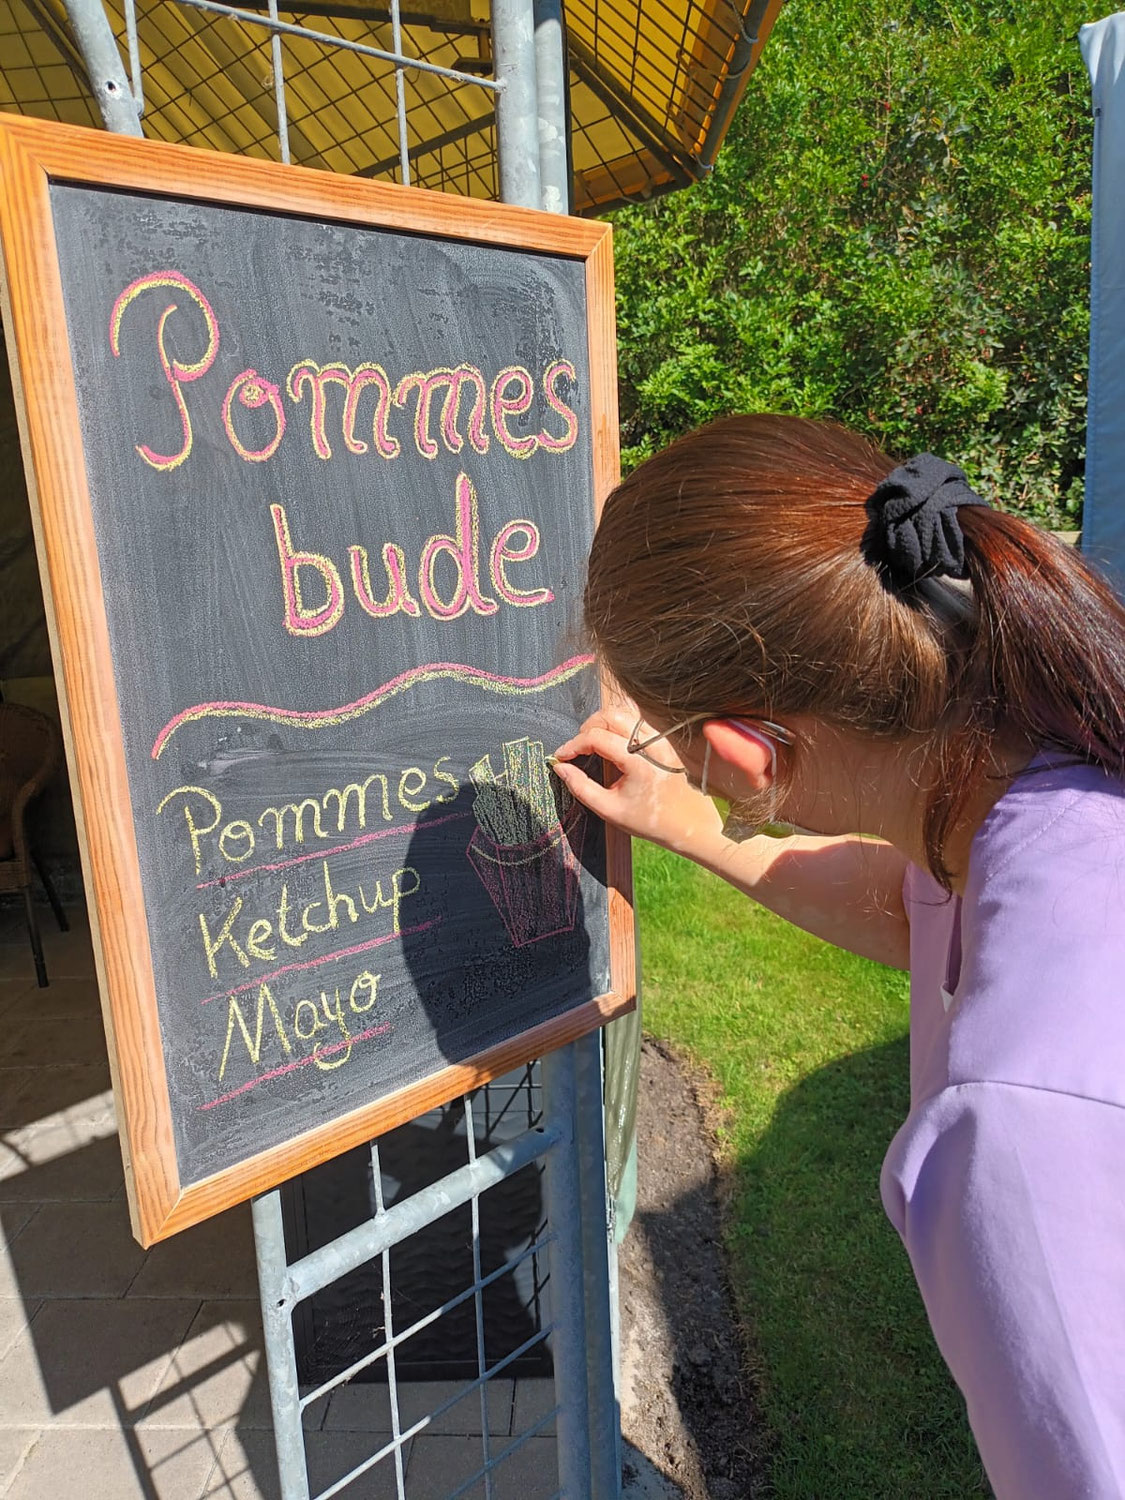 Pommes
bude
Pommes
Ketchup
Mayo